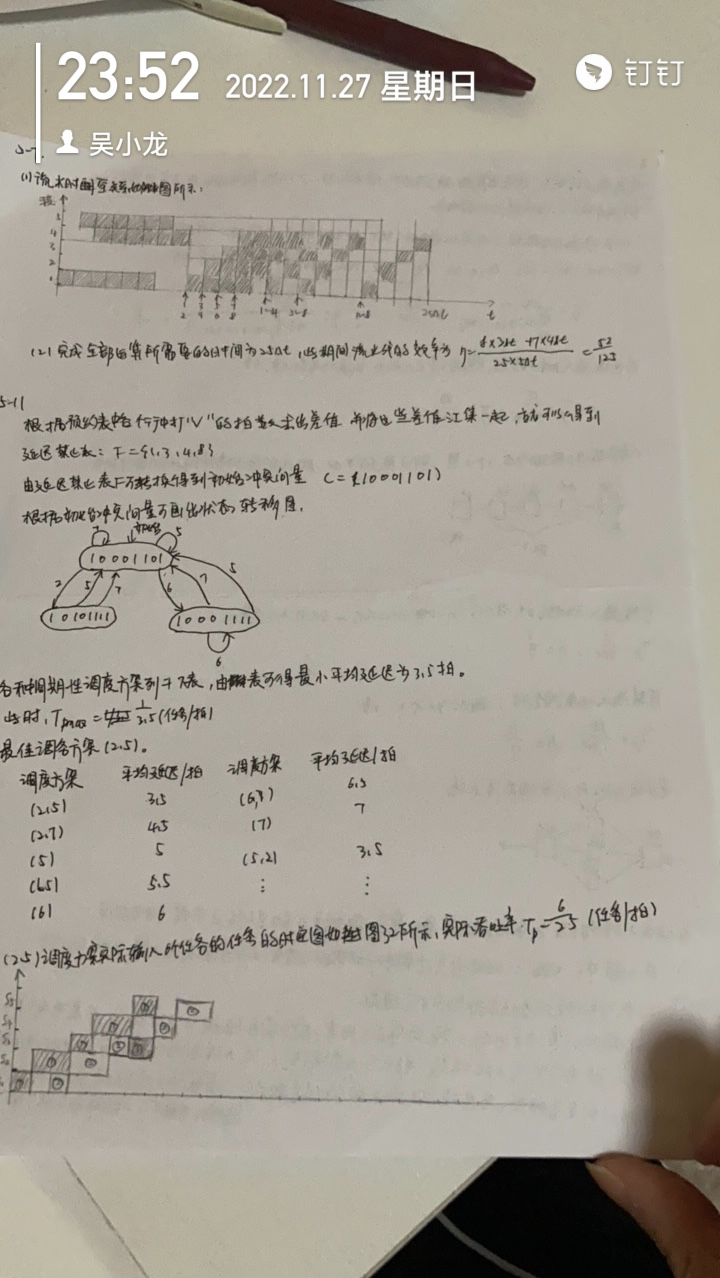 23:52 2022.11.27 星期日
钉钉
吴小龙
(1) 流水时空关系如图所示：
5
4
3
2
1
1 3 5 7 1~4 1~8
2 4 6 8
25Δt t
(2) 完成全部运算所需要的时间为25Δt，此期间流水线的效率为 η = (6×3Δt + 7×4Δt) / (25×5Δt) = 52/125
5-11
根据预约表每行中打"√"的拍数求出差值 并将这些差值汇集一起，就可以得到
延迟禁止表：F={1,3,4,8}
由延迟禁止表F可转换得到初始冲突向量 C=(10001101)
根据初始冲突向量可画出状态转移图.
7 初始 5
10001101
2 5 7 6 7 5
10101111 10001111
6
各种周期性调度方案列于下表，由表可得最小平均延迟为3.5拍。
此时，Tpmax = 1/3.5 (任务/拍)
最佳调度方案(2.5)。
调度方案 平均延迟/拍 调度方案 平均延迟/拍
(2,5) 3.5 (6,7) 6.5
(2,7) 4.5 (7) 7
(5) 5 (5,2) 3.5
(6,5) 5.5 ⋮ ⋮
(6) 6
(2.5)调度方案实际输入6个任务的任务的时空图如图32所示，实际吞吐率 Tp = 6/25 (任务/拍)